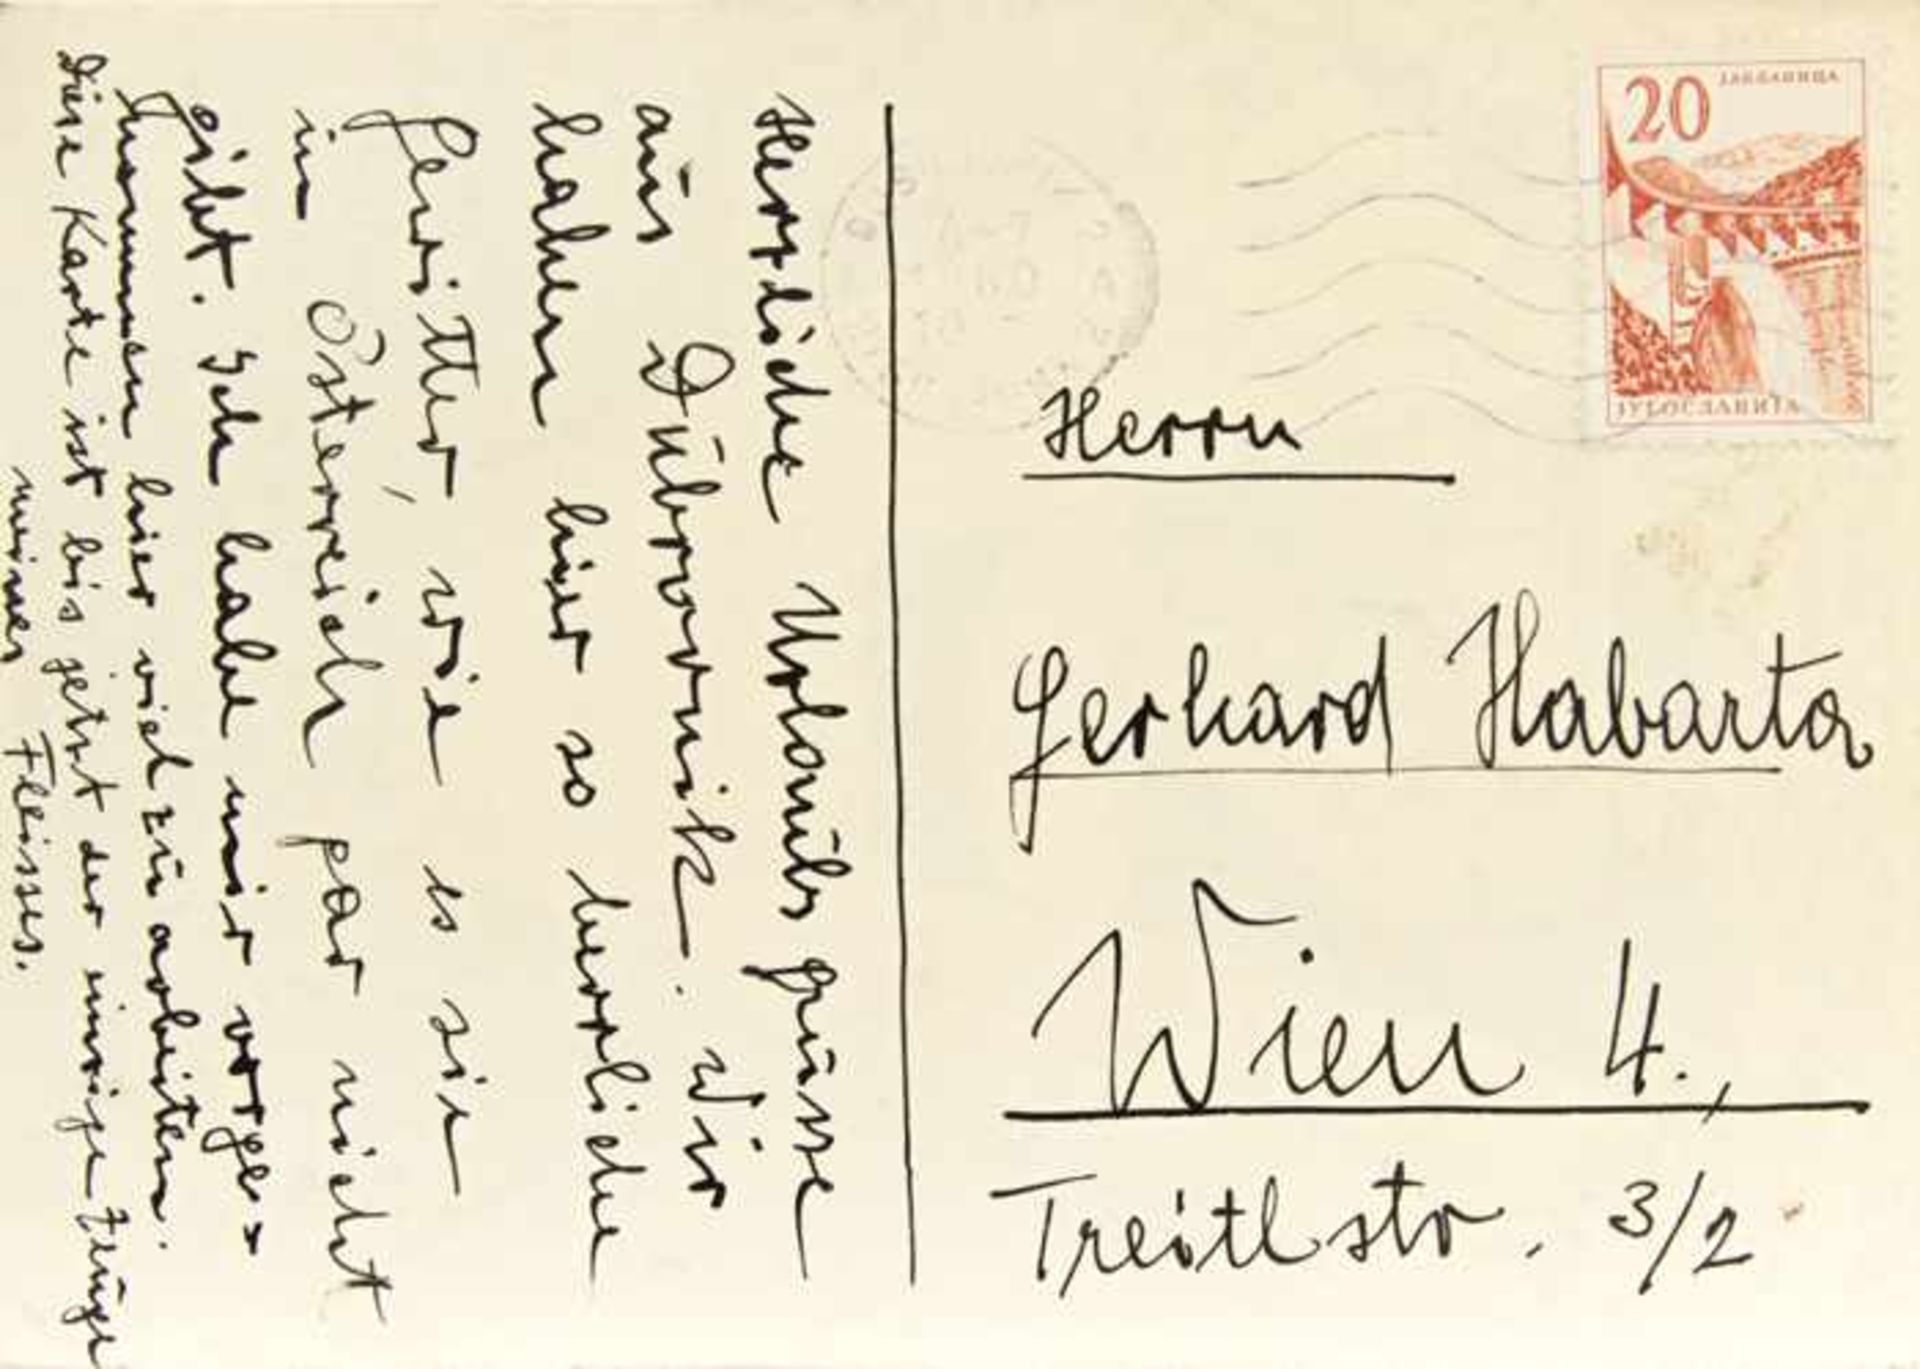 Herzliche Urlaubsgrüsse
aus Dubrovnik. Wir
haben hier so herrliche
Gewitter, wie es sie
in Österreich gar nicht
gibt. Ich habe mir vorge=
nommen hier viel zu arbeiten.
Diese Karte ist bis jetzt der einzige Zeuge
meines Fleisses.
20 ЈАБЛАНИЦА
ЈУГОСЛАВИЈА
Herrn
Gerhard Habarta
Wien 4.,
Treitlstr. 3/2